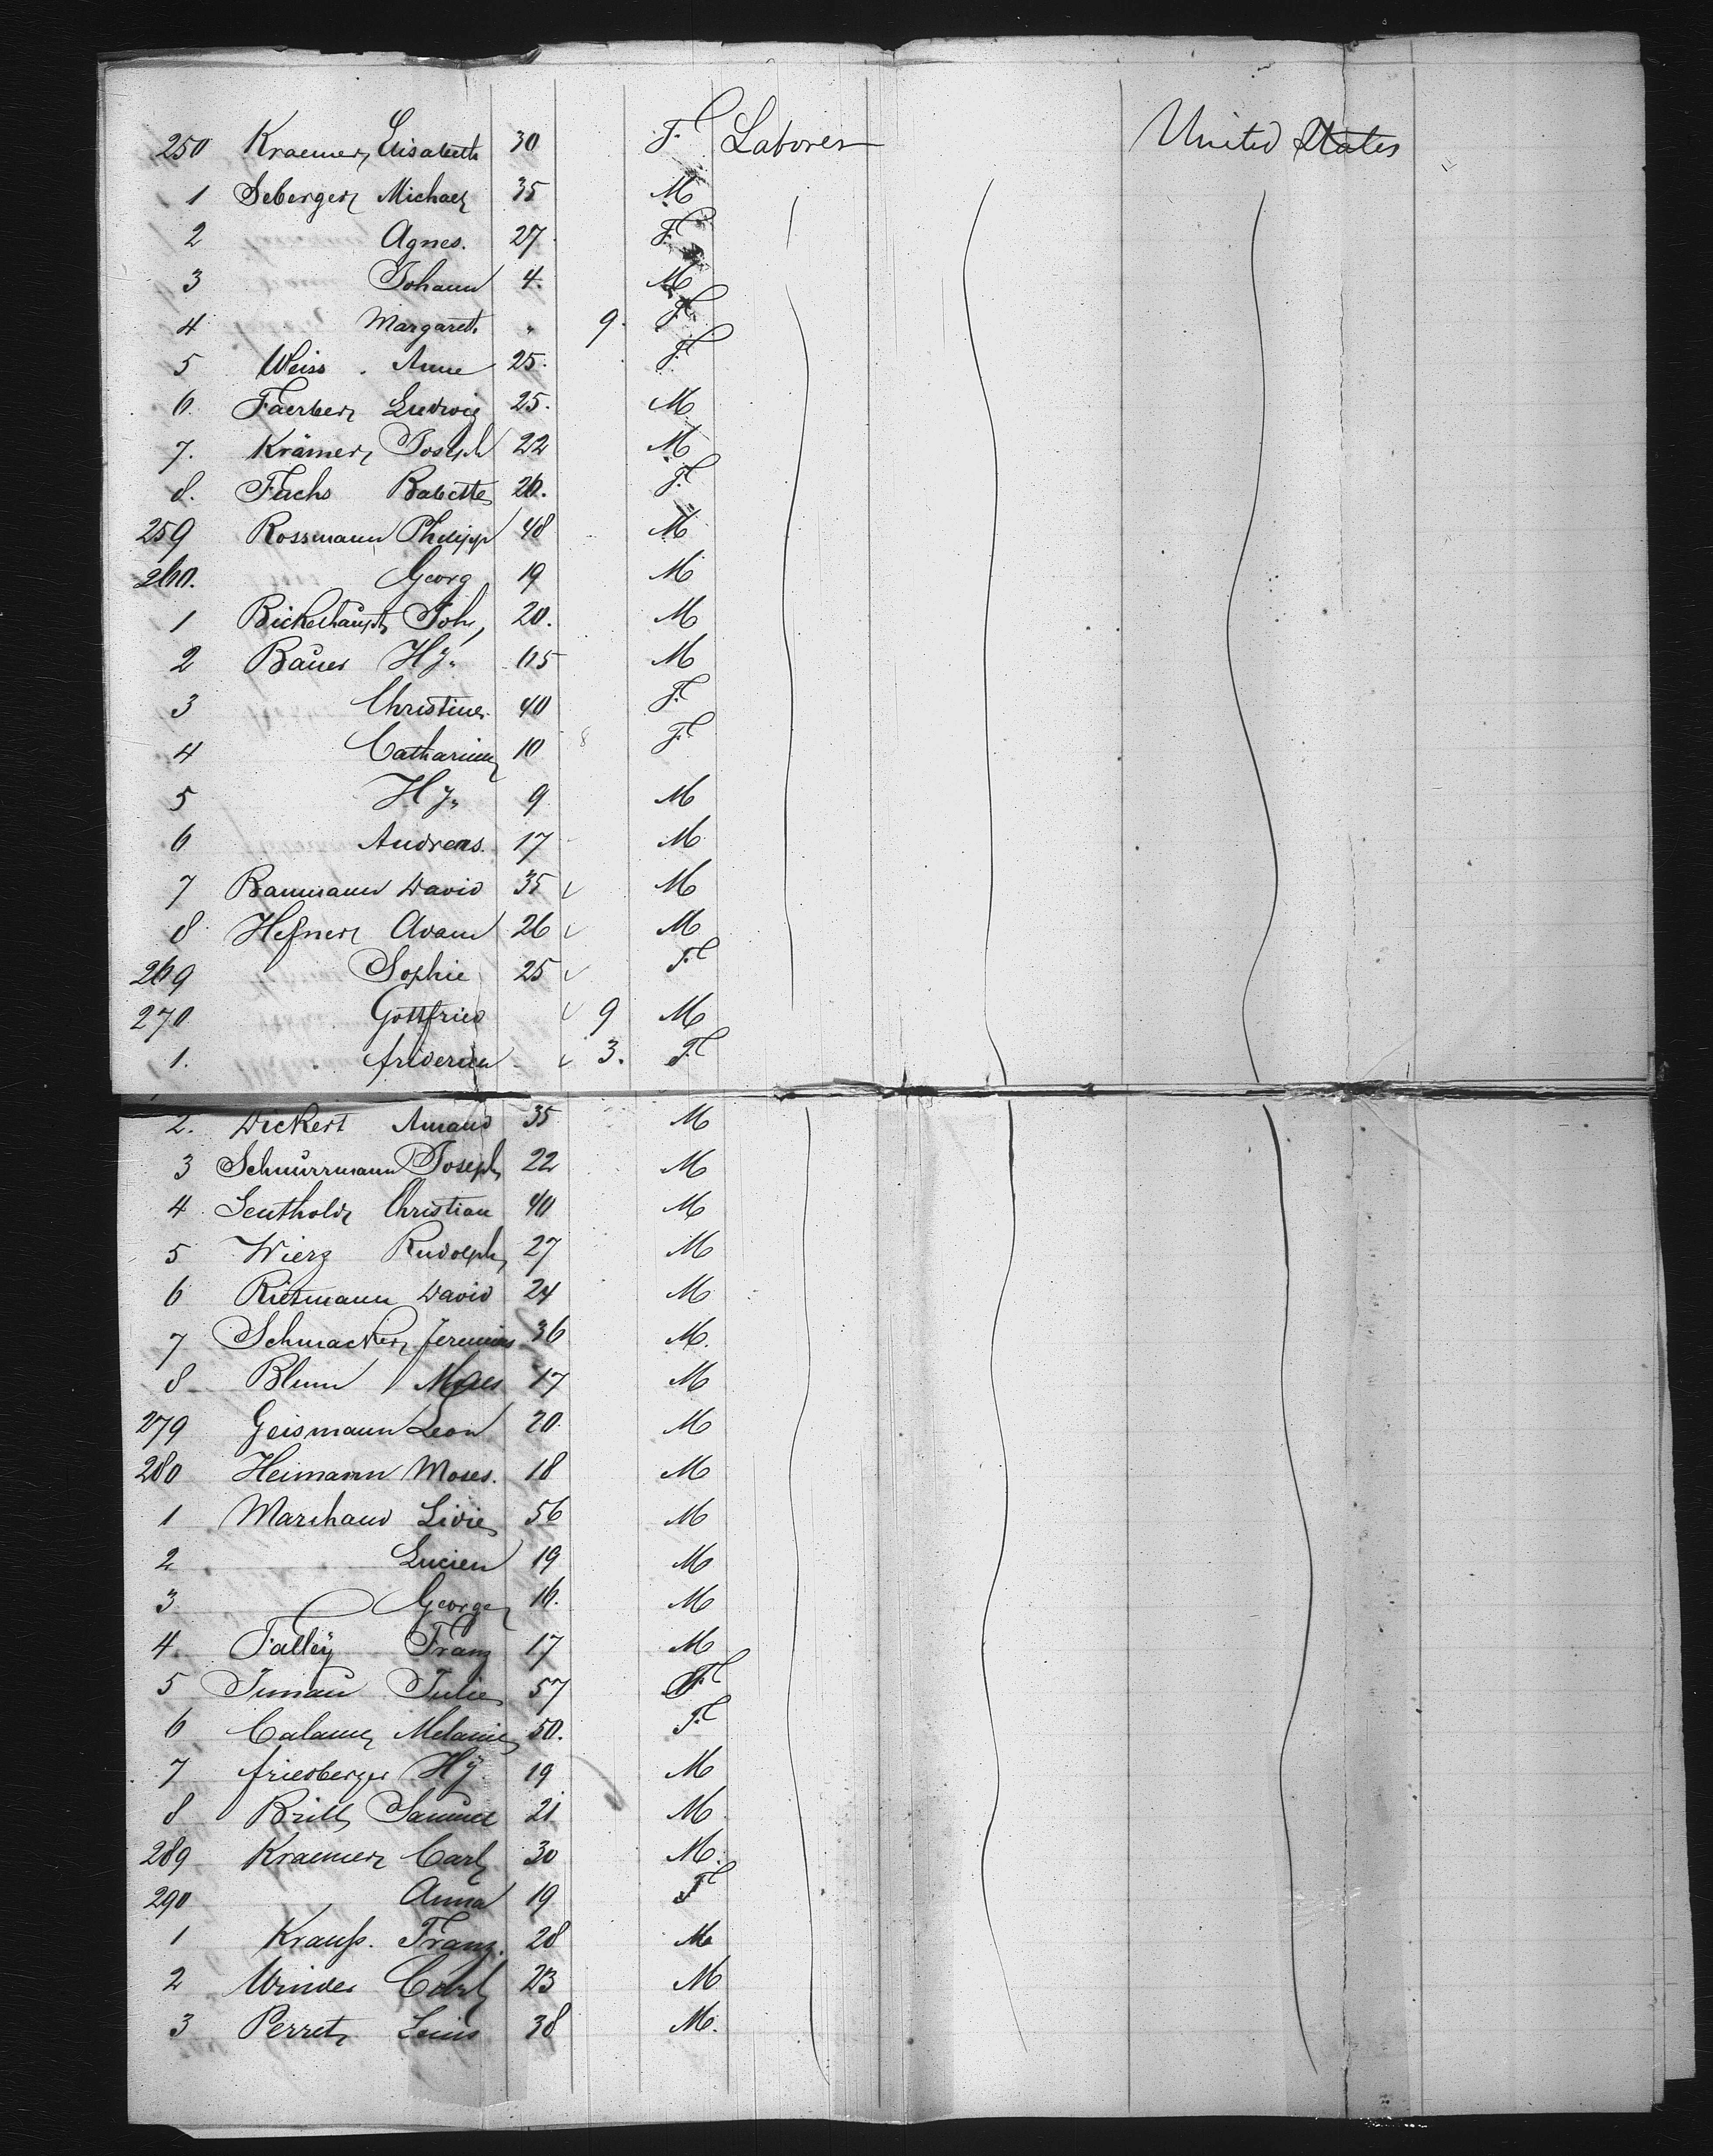 250 Kraemer, Elisabeth 30 F. Laborer United States
1 Seberger Michael 35 M
2 Agnes. 27 F.
3 Johann 4. M
4 Margareth " 9. F.
5 Weiss. Anne 25. F.
6 Faerber Ludwig 25. M
7. Krämer, Joseph 22 M
8. Fuchs Babette 26. F.
259 Rossmann Philipp 48 M
260. Georg 19 M
1 Bickelhaupt, Joh, 20. M
2 Bauer Hy. M
3 Christine 40 F.
4 Catharine 10 F.
5 Hy. 9 M
6 Andreas. 17 M
7 Baumann David 35 M
8 Hefner Adam 26 M
269 Sophie 25 F.
270 Gottfried 9 M
1. 3. F.
2. Dickert Amand 35 M
3 Schnurrmann Joseph 22 M
4 Leuthold Christian 40 M
5 Wierz Rudolph 27 M
6 Rietmann David 24 M
7 Schmacker, Jeremias 36 M.
8 Blum 17 M
279 Geismann Leon 20. M
280 Heimann Moses. 18 M
1 Marchand Livie 56 M
2 Lucien 19 M
3 George 16. M
4. Franz 17 M
5 Julie 57 F
6 Calame Melanie 50. F.
7 friedberger Hy 19 M
8 Brill Samuel 21 M
289 Kraemer Carl 30 M.
290 Anna 19 F
1 Krauß. Franz. 28 M
2 Winder Carl 23 M
3 Perret, Louis 38 M.